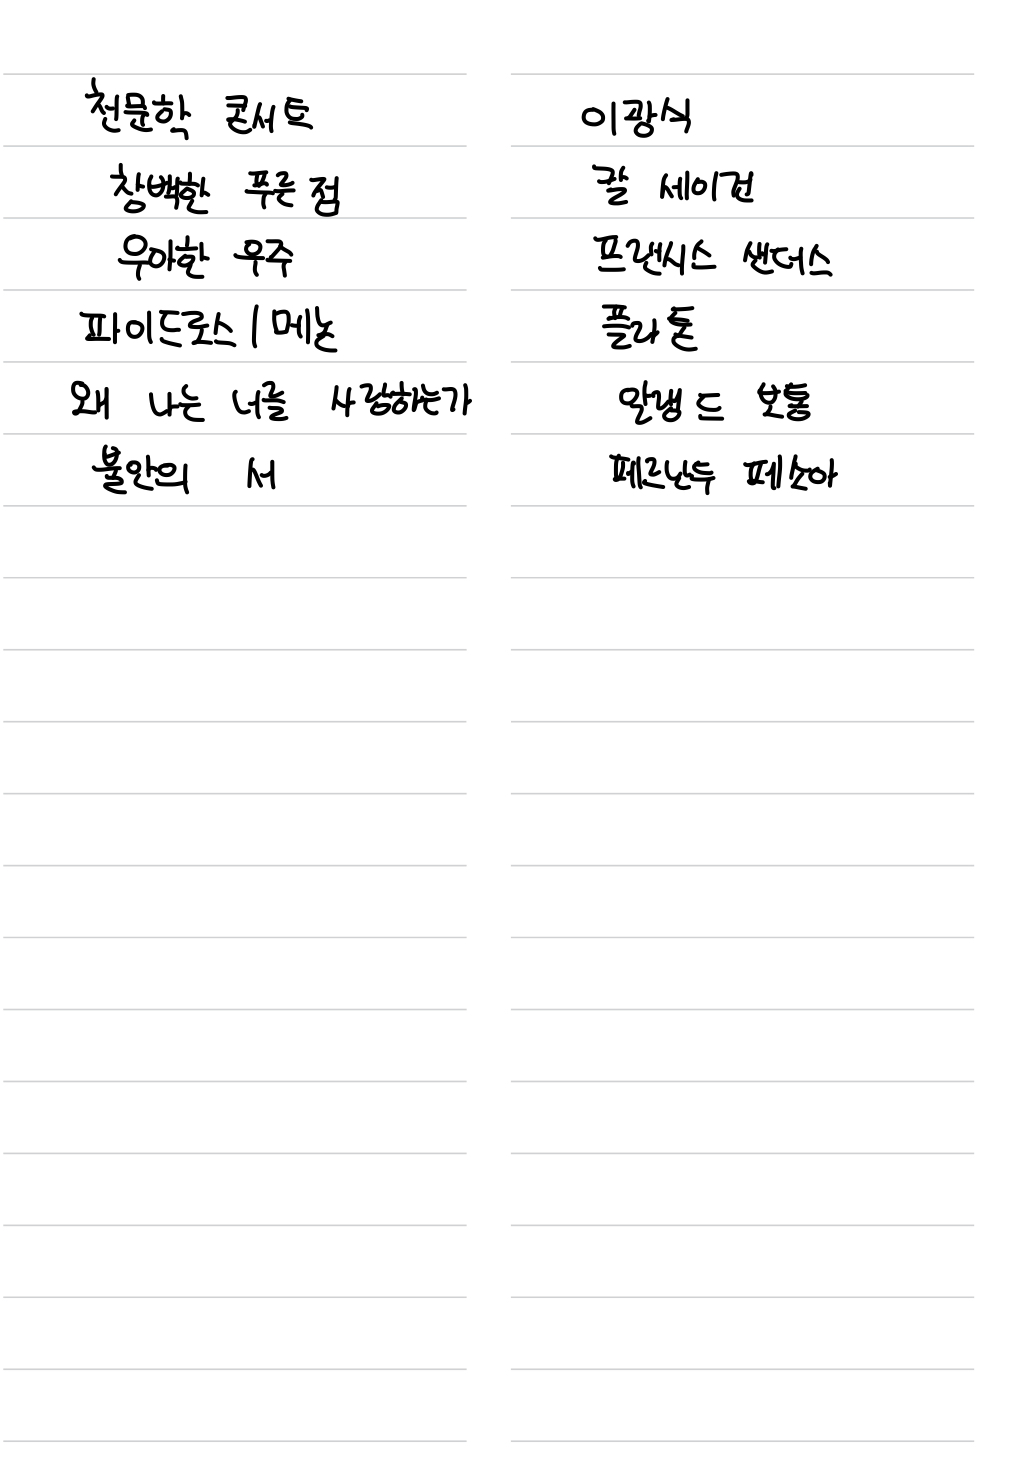 천문학 콘서트 이광식
창백한 푸른 점 칼 세이건
우아한 우주 프랜시스 샌더스
파이드로스 | 메논 플라톤
왜 나는 너를 사랑하는가 알랭 드 보통
불안의 서 페르난두 페소아